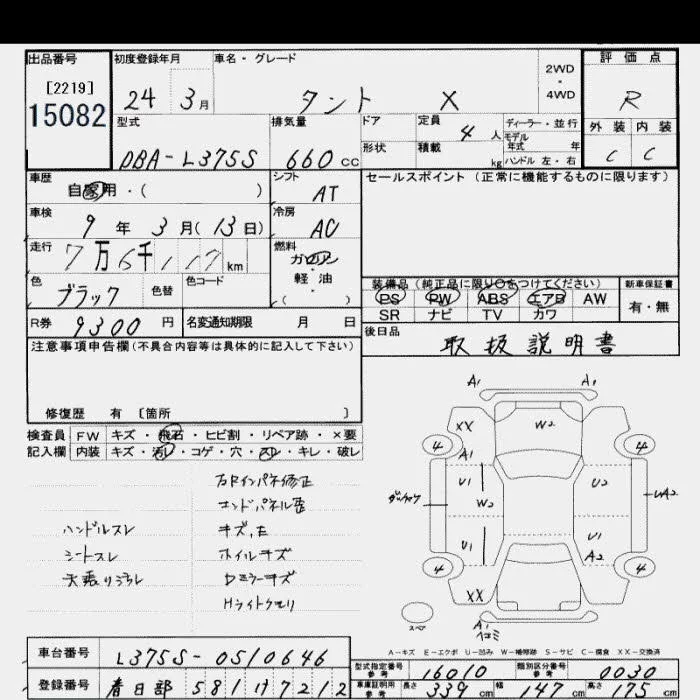 出品番号 初度登録年月 車名・グレード 2WD・4WD 評価点
[2219]
15082
24 3月 タント X R
型式 排気量 ドア 定員 4人 ディーラー・並行 外装 内装
モデル年式 年
形状 積載 kg ハンドル 左・右
DBA-L375S 660cc C C
車歴 自家用・( ) シフト AT セールスポイント(正常に機能するものに限ります)
車検 9年3月(13日) 冷房 AC
走行 7万6千117km 燃料 ガソリン
軽油
( )
色 ブラック 色替 色コード
装備品(純正品に限り○をつけてください) 新車保証書
PS PW ABS エアB AW 有・無
SR ナビ TV カワ
R券 9300円 名変通知期限 月 日
後日品 取扱説明書
注意事項申告欄(不具合内容等は具体的に記入して下さい)
修復歴 有 〔箇所 〕
検査員 FW キズ・飛石・ヒビ割・リペア跡・×要
記入欄 内装 キズ・汚レ・コゲ・穴・スレ・キレ・破レ
右Rインパネ修正
エンドパネル歪
ハンドルスレ キズ,E
シートスレ ホイルキズ
天張りヨゴレ Dミラーキズ
Hライトクモリ
A1 A1
XX W2
4 4
A1
U1 U2
W2 UA2
U1 U1
A2
4 4
XX
A1
ヨゴミ
スペア
A-キズ E-エクボ U-凹み W-補修跡 S-サビ C-腐食 XX-交換済
車台番号 L375S-0510646
型式指定番号 参考 16010 類別区分番号 参考 0030
登録番号 春日部 581け7212
車庫証明用 参考 長さ 339cm 幅 147cm 高さ 175cm